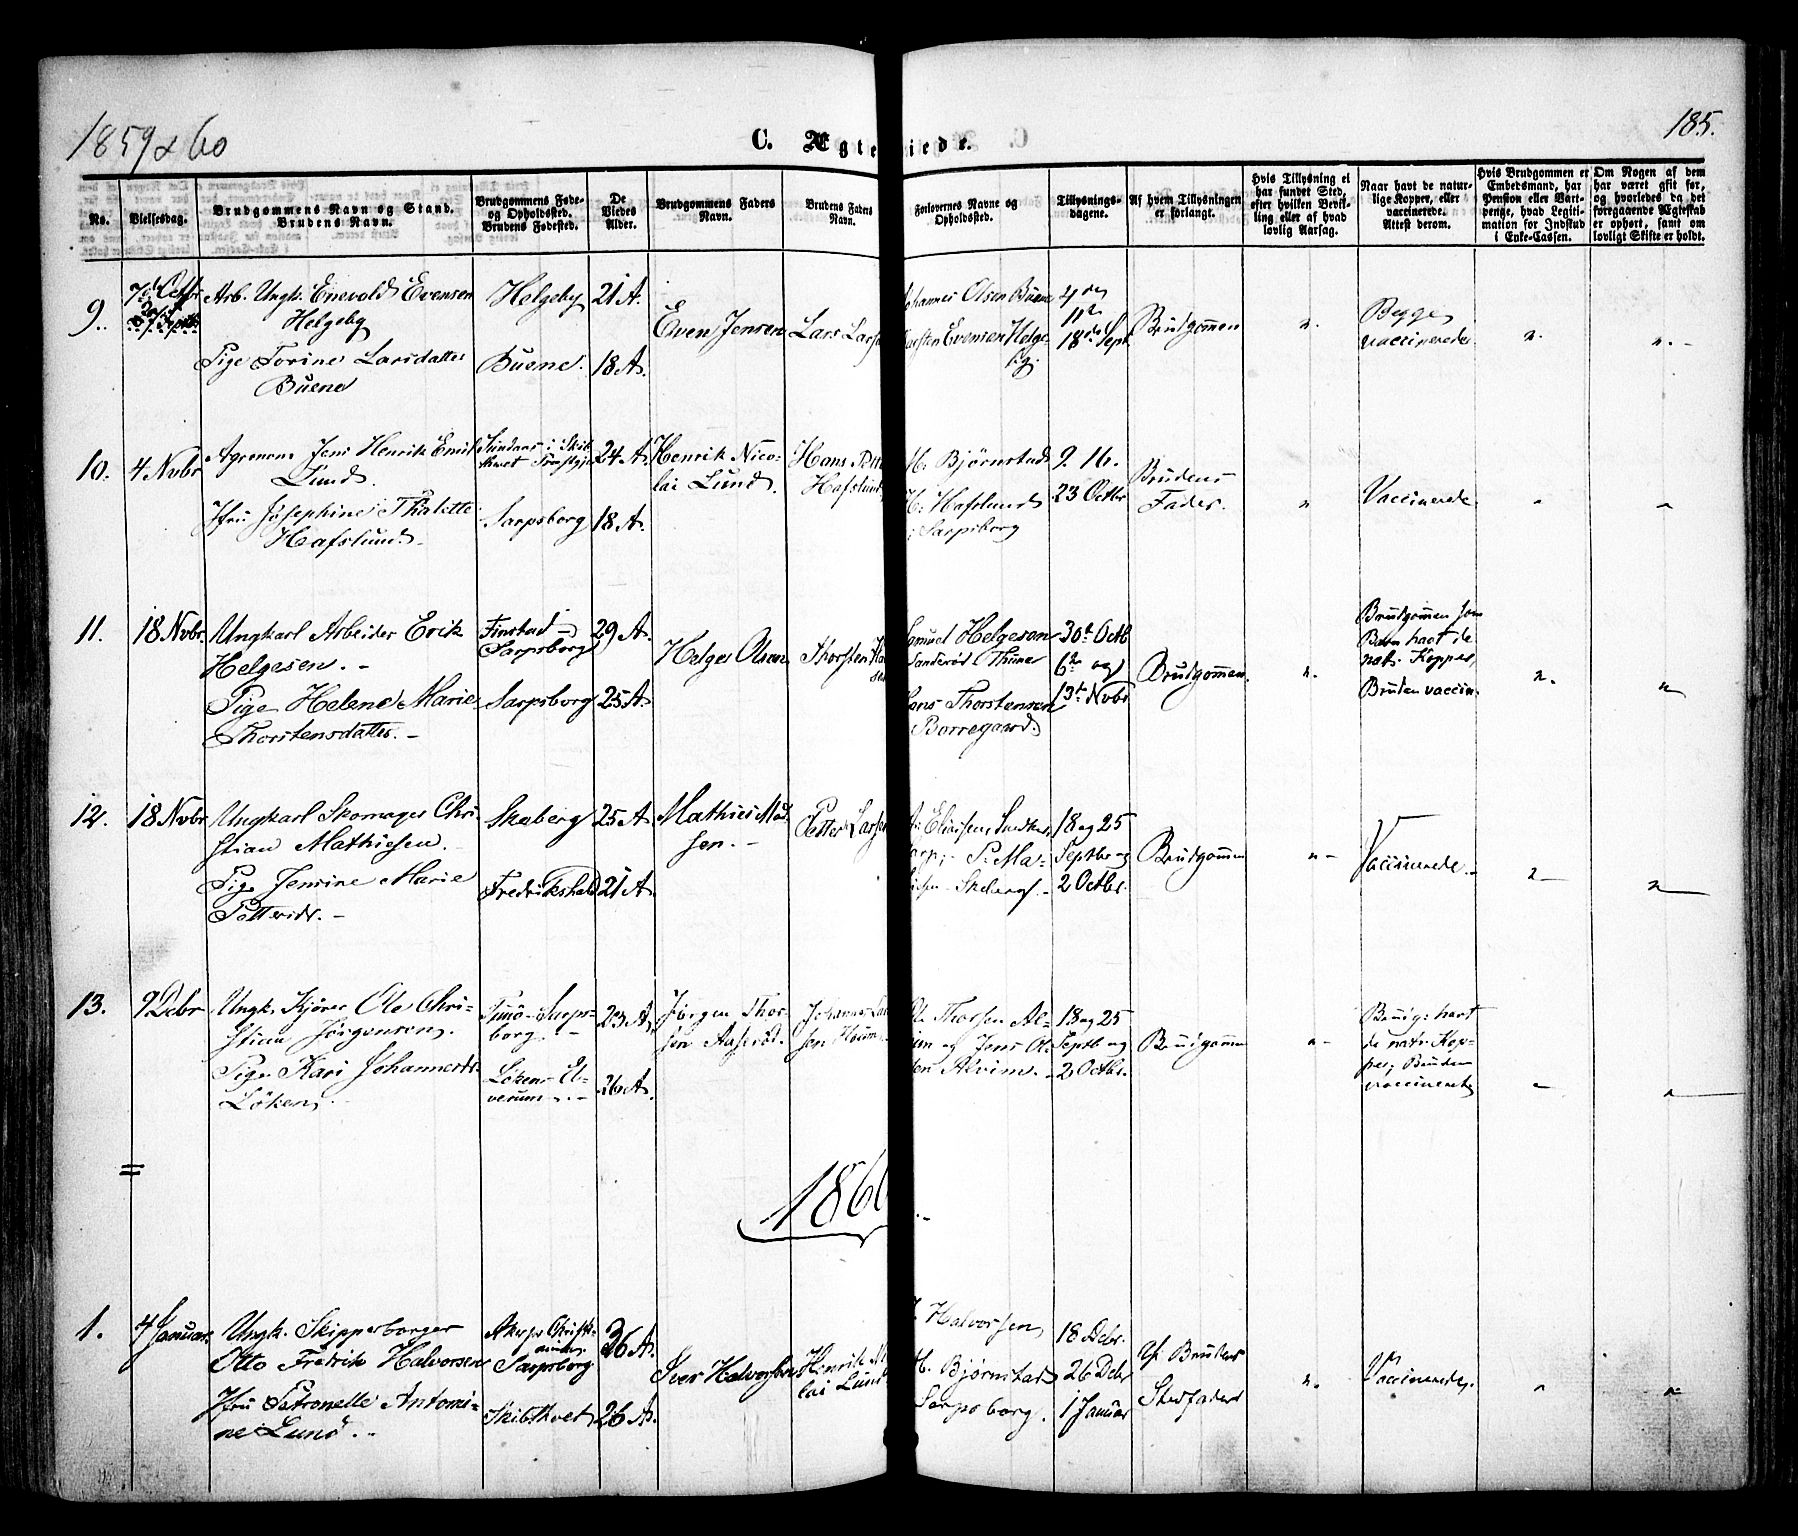 1859 & 60
C. Ægte
iede.
185.
No.
Vielsesdag.
Brudgommens Navn og Stand.
Brudens Navn.
Brudgommens Føde-
og Opholdssted.
Brudens Fødested.
De
Viedes
Alder.
Brudgommens Faders
Navn.
Brudens Faders
Navn.
Forlovernes Navne og
Opholdssted.
Tillysnings-
dagene.
Af hvem Tillysningen
er forlangt.
Hvis Tillysning ei
har fundet Sted,
efter hvilken Bevil-
ling eller af hvad
lovlig Aarsag.
Naar havt de natur-
lige Kopper, eller
vaccinerede.
Attest derom.
Hvis Brudgommen er
Embedsmand, har
Pension eller Vart-
penge, hvad Legiti-
mation for Indskud
i Enke-Cassen.
Om Nogen af dem
har været gift før,
og hvorledes da det
foregaaende Ægteskab
er ophørt, samt om
lovligt Skifte er holdt.
9.
7de Octbr
Arb. Ungk. Enevold Evensen
Helgeby
Pige Torine Larsdatter
Buene
Helgeby
Buene.
21 A.
18 A.
Even Jensen
Lars Lars
Johannes Olsen Buene
Karsten Evensen Helge-
by.
4de
11te
18de Sept.
Brudgomen
"
Begge
vaccinerede
"
"
10.
4 Nvbr
Agronom Jens Henrik Emil
Lund.
Jfru Josephine Thalette
Hafslund
Skibtvet
Sarpsborg
24 A.
18 A.
Henrik Nico-
lai Lund.
Hans
Hafslund
H. Bjørnstad
H. Hafslund
i Sarpsborg
9. 16.
23 Octbr
Brudens
Fader.
"
Vaccinerede
"
"
11.
18 Nvbr.
Ungkarl Arbeider Erik
Helgesen.
Pige Helene Marie
Thorstensdatter.
Finstad
Sarpsborg
Sarpsborg
29 A.
25 A.
Helge Olsen
Thorsten
Samuel Helgesen
Sanderød Thune
Hans Thorstensen
Borregaard
30te Octb
6te og
13de Nvbr
Brudgomen.
"
Brudgomen som
Barn havt de
nat. Kopper,
Bruden vaccin.
"
"
12.
18 Nvbr
Ungkarl Skomager Chri-
stian Mathiesen.
Pige Jensine Marie
Pettersdr.
Skeberg
Fredrikshald
25 A.
21 A.
Mathies Mad
sen.
Petter Larsen
18 og 25
Septbr og
2 Octbr.
Brudgomen
"
Vaccinerede
"
"
13.
9 Debr
Ungk. Kjører Ole Chri-
stian Jørgensen.
Pige Kari Johannesdr.
Løken.
Sarps-
borg
Løken El-
verum
23 A.
26 A.
Jørgen Thor-
sen Aaserød.
Johannes Lar
sen
Ole Thorsen Al-
vim og Jens Ol-
sen Alvim.
18 og 25
Septb og
2 Octbr.
Brudgomen
"
Brudg: havt
de natr. Kop-
per, Bruden
vaccineret
"
"
=
1860
1.
4 Januar.
Ungk. Skipperborger
Otto Fredrik Halvorsen
Jfru Petronelle Antoni-
ne Lund.
Aker
Sarpsborg
Skibtvet
36 A.
26 A.
Iver Halvorsen
Henrik Ni
lai Lund
J. Halvorsen
H. Bjørnstad
Sarpsborg.
18 Debr.
26 Debr
1 Januar
Af Brudens
Stedfader
"
Vaccinerede,
"
"